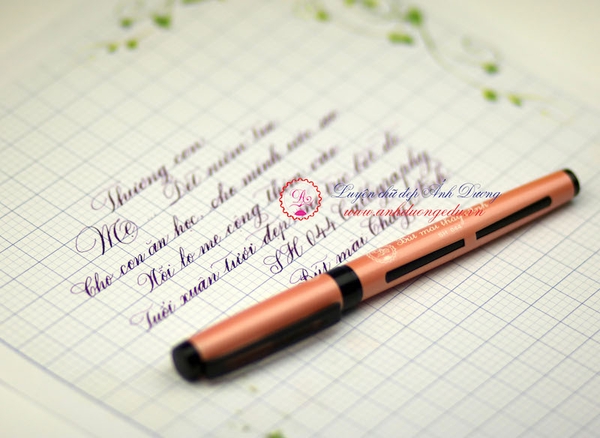 Thương con
Mẹ Dệt niềm tin
Cho con ăn học, cho mình ước mơ
Nỗi lo mẹ cõng
Tuổi xuân tươi đẹp
SH 044 Calligraphy
Bút mài
Luyện chữ đẹp Ánh Dương
www.anhduongedu.vn
Bút mài thầy Ánh
SH 044